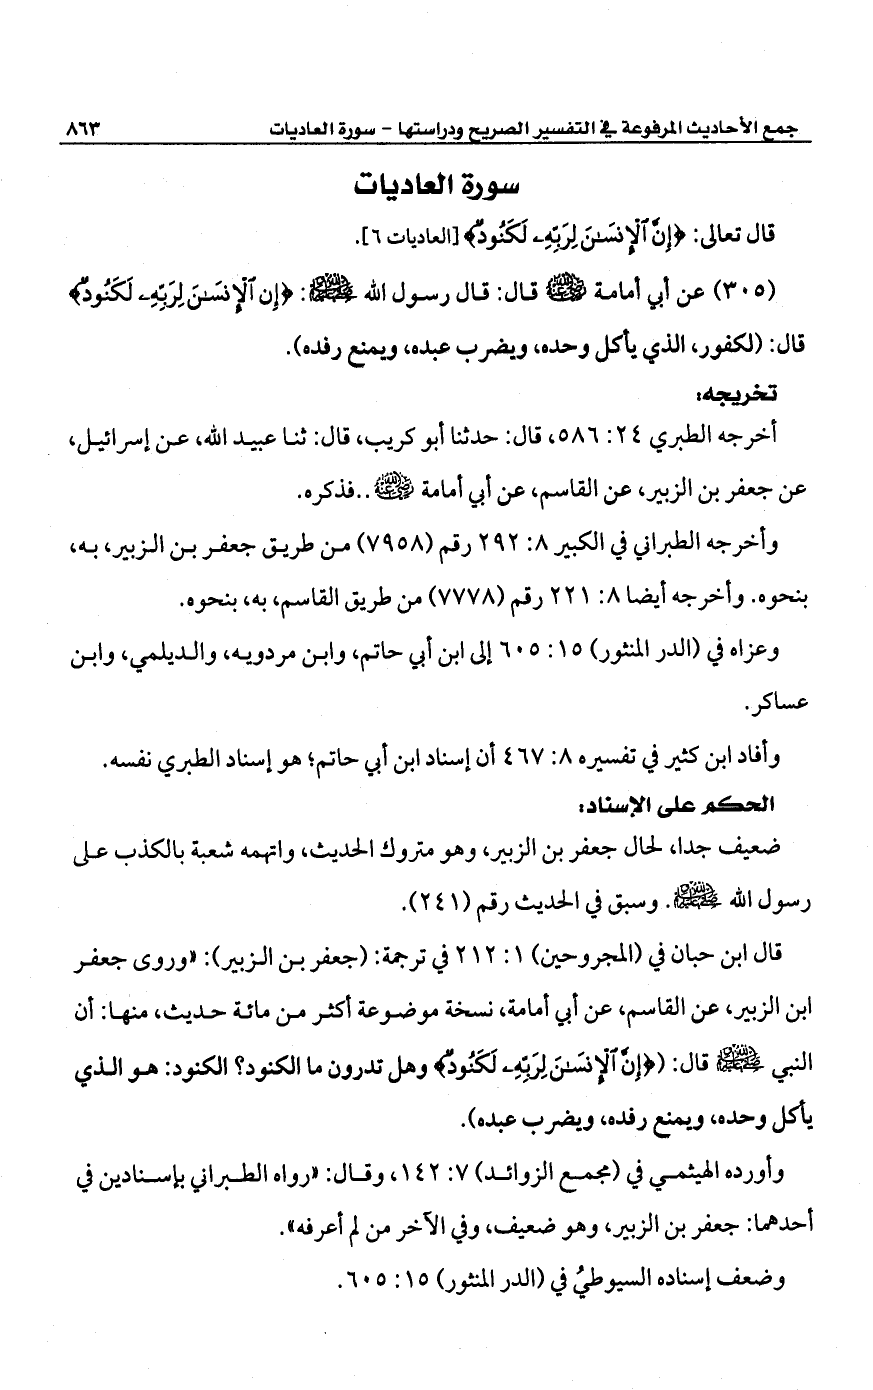 جمع الأحاديث المرفوعة في التفسير الصريح ودراستها - سورة العاديات ٨٦٣
سورة العاديات
قال تعالى: ﴿إِنَّ ٱلْإِنسَـٰنَ لِرَبِّهِۦ لَكَنُودٌ﴾ [العاديات ٦].
(٣٠٥) عن أبي أمامة رضي الله عنه قال: قال رسول الله ﷺ: ﴿إِن ٱلْإِنسَـٰنَ لِرَبِّهِۦ لَكَنُودٌ﴾
قال: (لكفور، الذي يأكل وحده، ويضرب عبده، ويمنع رفده).
تخريجه:
أخرجه الطبري ٢٤: ٥٨٦، قال: حدثنا أبو كريب، قال: ثنا عبيد الله، عن إسرائيل،
عن جعفر بن الزبير، عن القاسم، عن أبي أمامة رضي الله عنه..فذكره.
وأخرجه الطبراني في الكبير ٨: ٢٩٢ رقم (٧٩٥٨) من طريق جعفر بن الزبير، به،
بنحوه. وأخرجه أيضا ٨: ٢٢١ رقم (٧٧٧٨) من طريق القاسم، به، بنحوه.
وعزاه في (الدر المنثور) ١٥: ٦٠٥ إلى ابن أبي حاتم، وابن مردويه، والديلمي، وابن
عساكر.
وأفاد ابن كثير في تفسيره ٨: ٤٦٧ أن إسناد ابن أبي حاتم؛ هو إسناد الطبري نفسه.
الحكم على الإسناد:
ضعيف جدا، لحال جعفر بن الزبير، وهو متروك الحديث، واتهمه شعبة بالكذب على
رسول الله ﷺ. وسبق في الحديث رقم (٢٤١).
قال ابن حبان في (المجروحين) ١: ٢١٢ في ترجمة: (جعفر بن الزبير): «وروى جعفر
ابن الزبير، عن القاسم، عن أبي أمامة، نسخة موضوعة أكثر من مائة حديث، منها: أن
النبي ﷺ قال: (﴿إِنَّ ٱلْإِنسَـٰنَ لِرَبِّهِۦ لَكَنُودٌ﴾ وهل تدرون ما الكنود؟ الكنود: هو الذي
يأكل وحده، ويمنع رفده، ويضرب عبده).
وأورده الهيثمي في (مجمع الزوائد) ٧: ١٤٢، وقال: «رواه الطبراني بإسنادين في
أحدهما: جعفر بن الزبير، وهو ضعيف، وفي الآخر من لم أعرفه».
وضعف إسناده السيوطيُ في (الدر المنثور) ١٥: ٦٠٥.